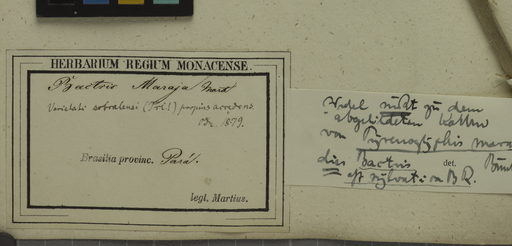 HERBARIUM REGIUM MONACENSE.
Bactris Maraja Mart
Varietati sobralensi (Tr.!) propius accedens.
1879.
Brasilia provinc. Pará.
legt. Martius.
Wedel nicht zu dem
abgebildeten Kolben
von Pyrenoglyphis mara
dies Bactris det.
B R.